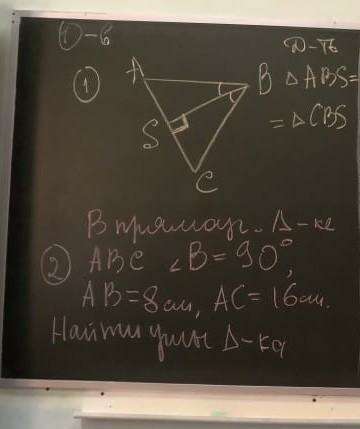 ①-6
Д-ть
① A B △ABS=
S =△CBS
C
В прямоуг. △-ке
② ABC ∠B=90°,
AB=8см, AC=16см.
Найти углы △-ка